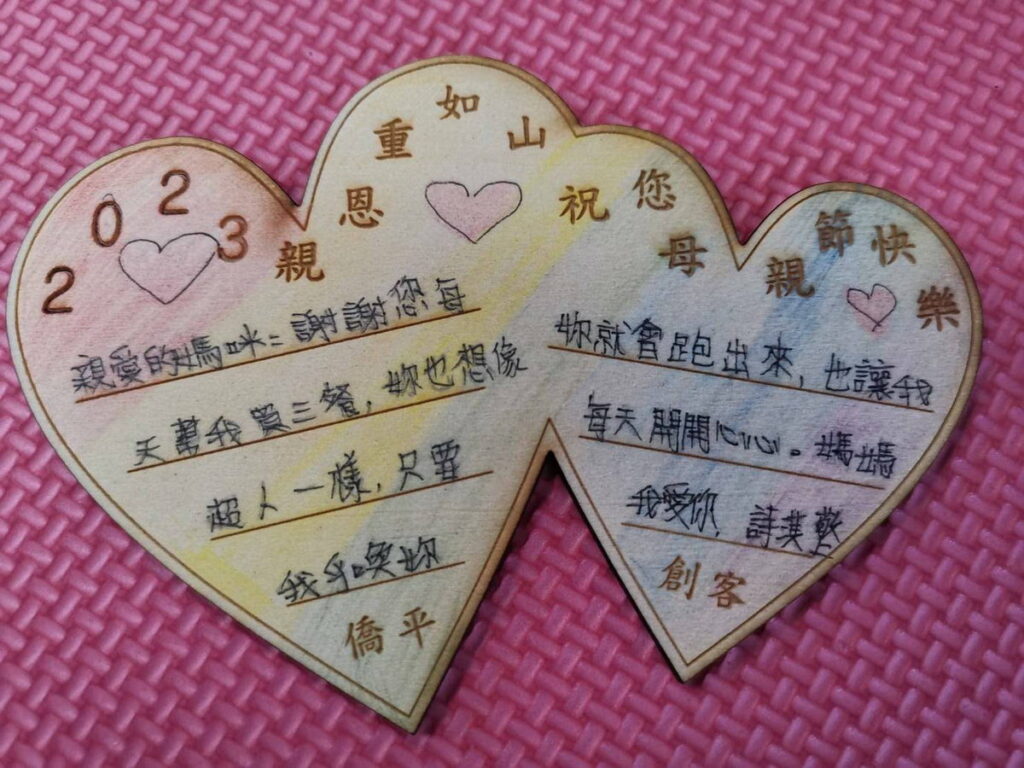 2023
親恩重如山祝您母親節快樂
親愛的媽咪:謝謝您每
天幫我買三餐,妳也想像
超人一樣,只要
我乎喚妳
妳就會跑出來,也讓我
每天開開心心。媽媽
我愛你,詩淇敬
僑平
創客